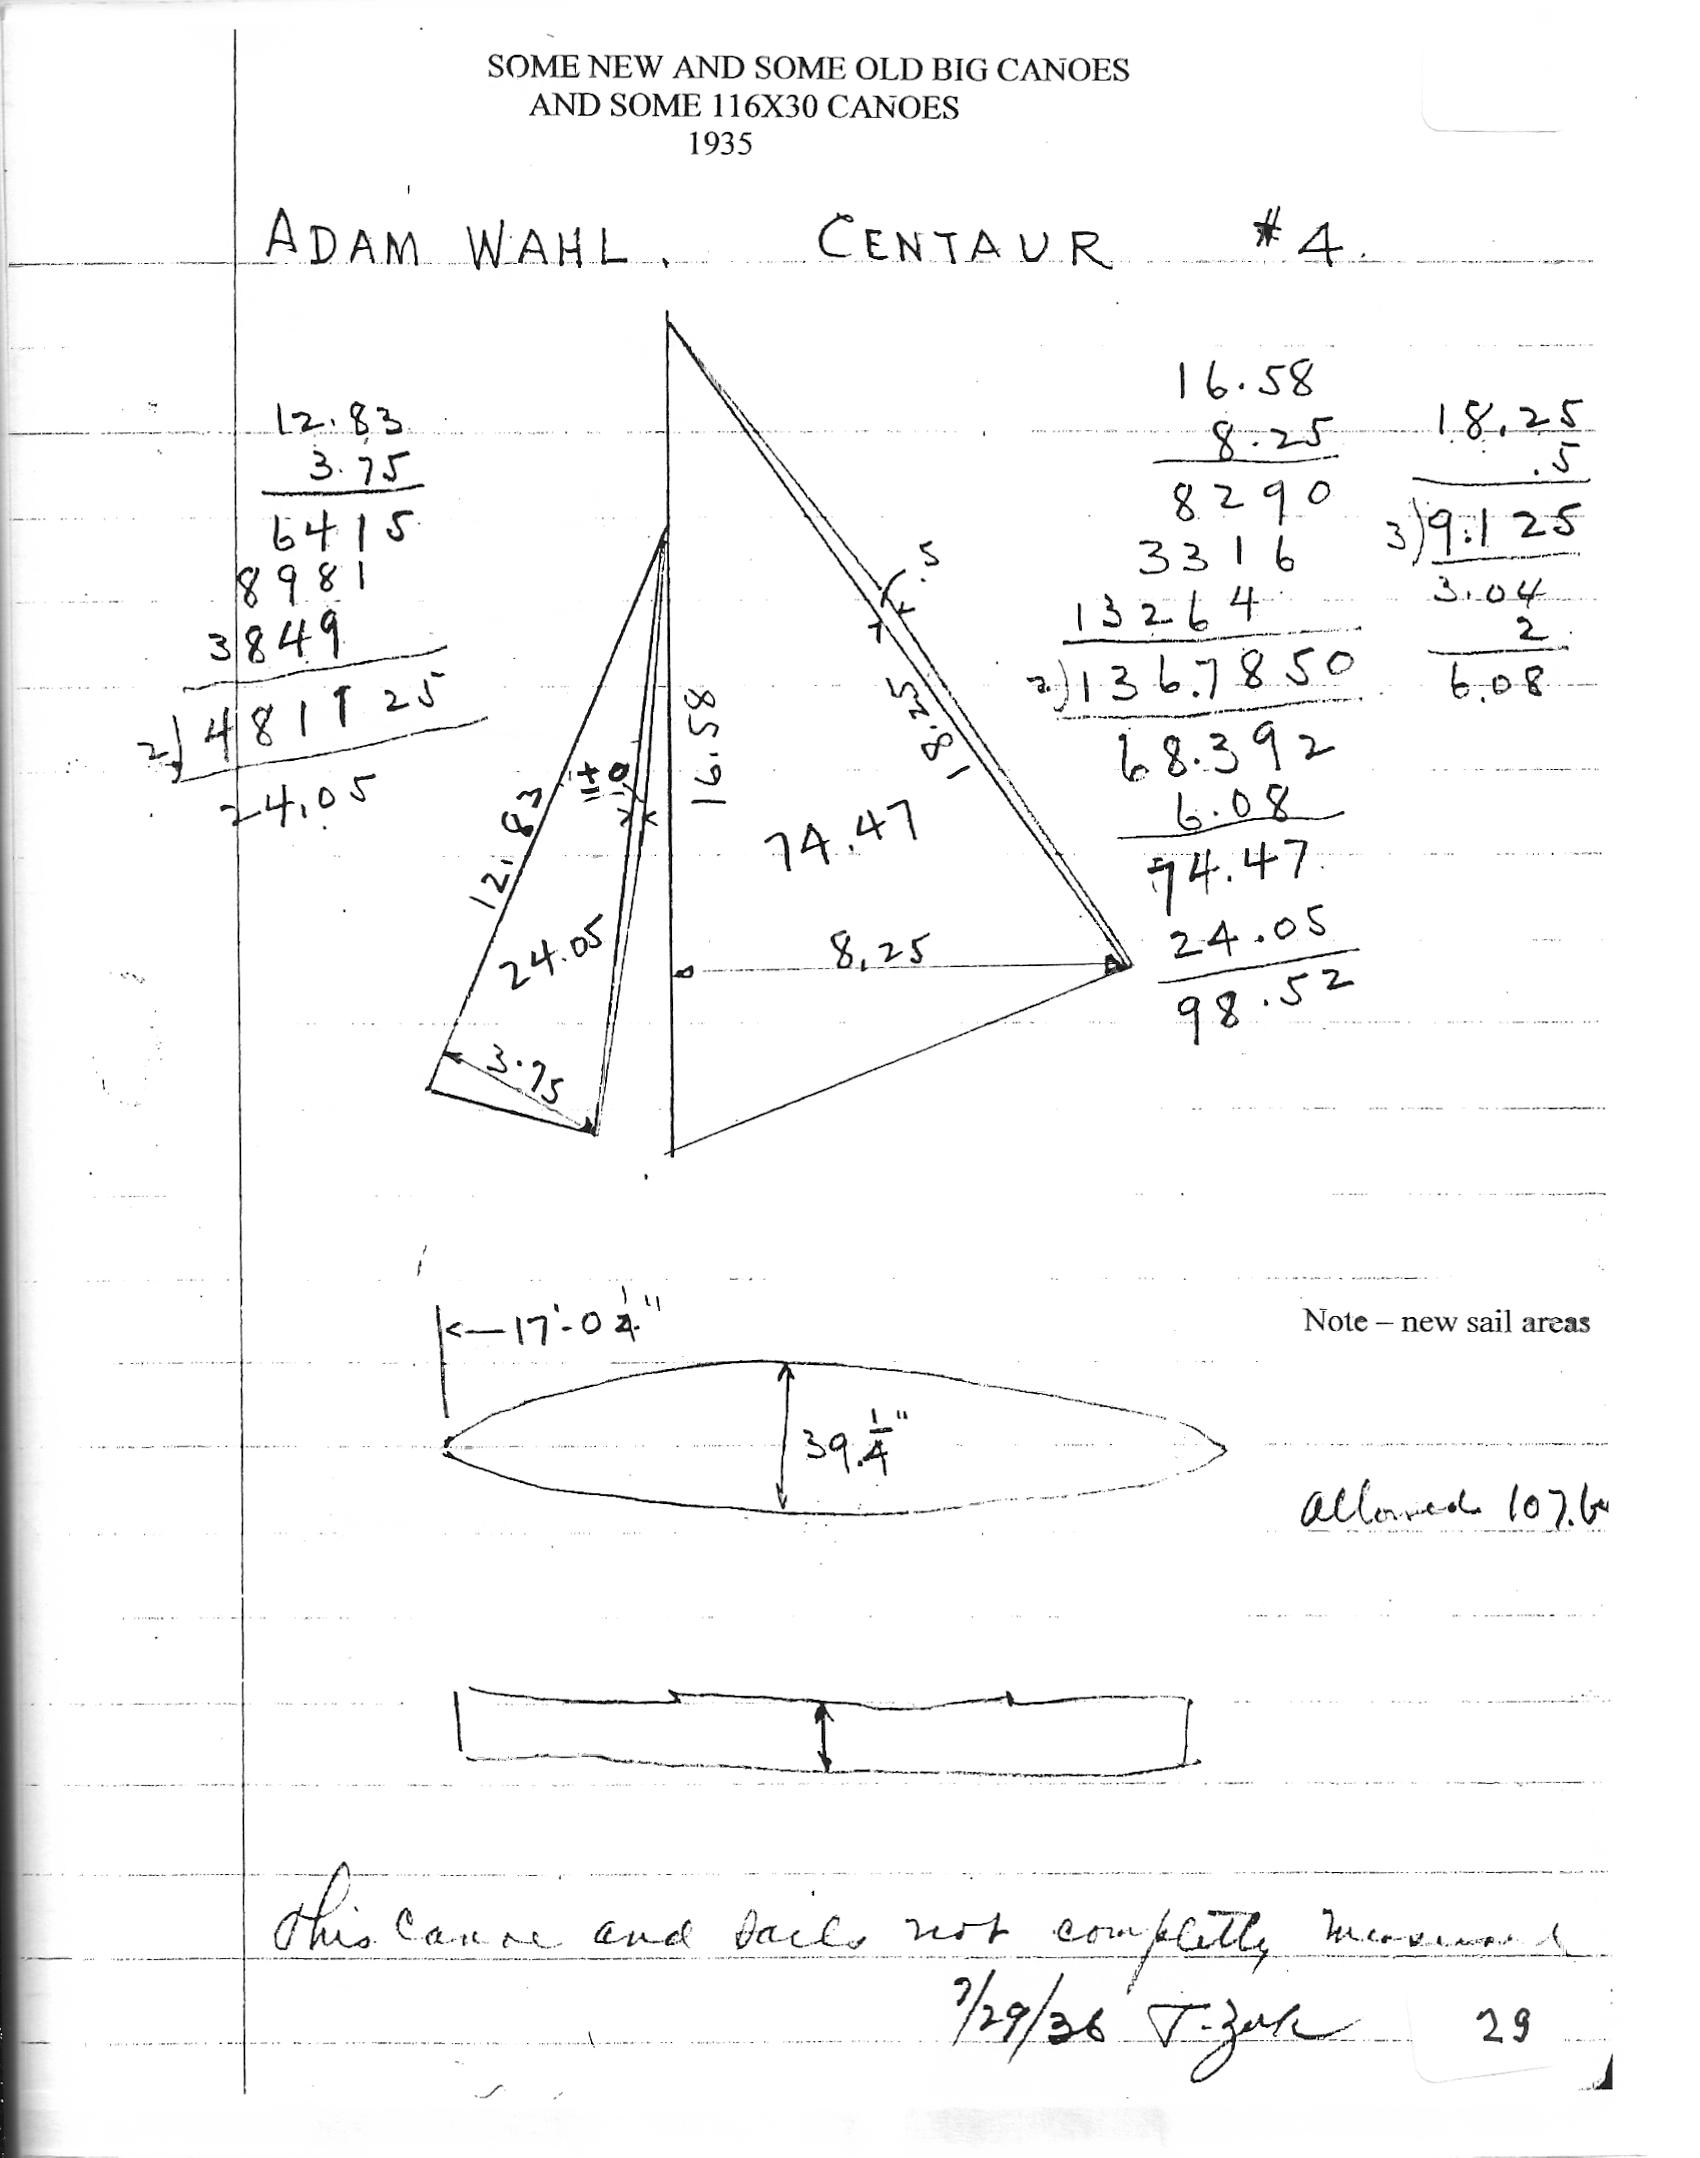 SOME NEW AND SOME OLD BIG CANOES
AND SOME 116X30 CANOES
1935
ADAM WAHL. CENTAUR #4.
12.83
3.75
6415
8981
3849
2)481125
24.05
16.58
8.25
8290
3316
13264
2)136.7850
68.392
6.08
74.47
24.05
98.52
18.25
.5
3)9.125
3.04
2
6.08
.5
18.25
16.58
12.83
74.47
24.05
8.25
3.75
17'-0 1/4"
Note – new sail areas
39.1/4"
allowed 107.6
This Canoe and Sails not completly measured
7/29/36 T. Zuk
29